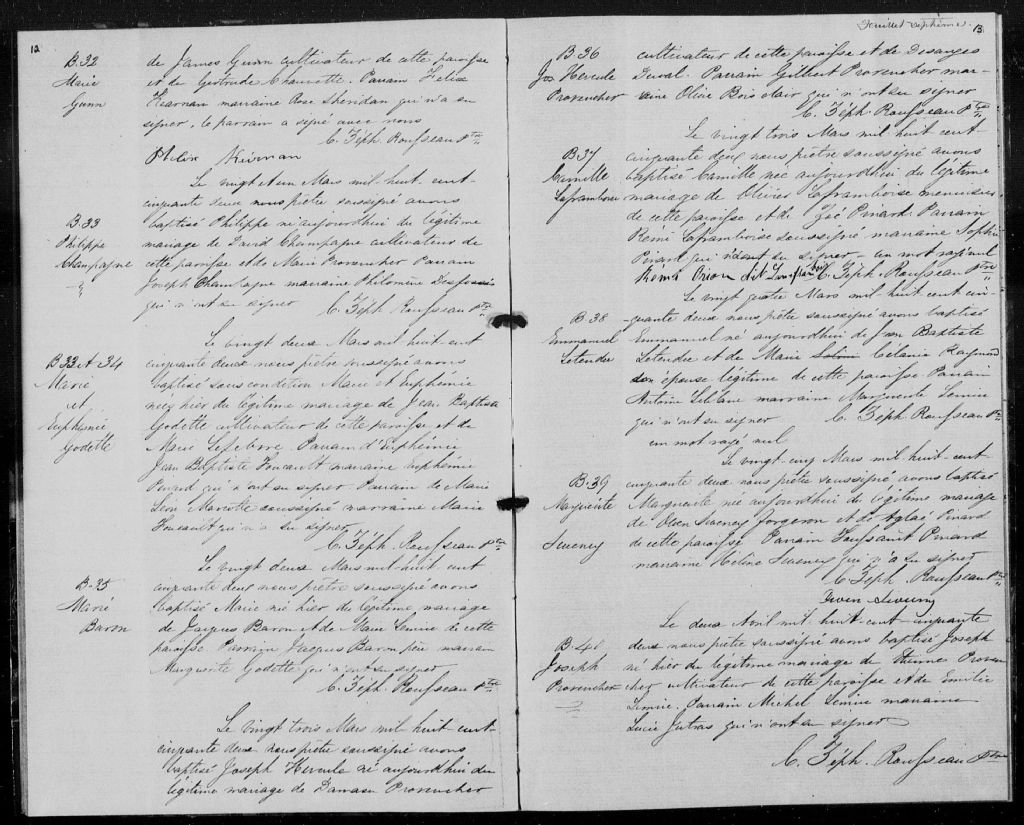 12
B-32
Marie
Gunn
de James Gunn cultivateur de cette paroisse
et de Gertrude Parrain Felix
Kearnan marraine Rose Sheridan qui n'a su
signer, le parrain a signé avec nous
C. Zéph. Rousseau Ptre
Philix Kiernan
Le vingt et un Mars mil-huit-cent-
cinquante deux nous prêtre soussigné avons
B-33
Philippe
Champagne
baptisé Philippe né aujourdhui du légitime
mariage de David Champagne cultivateur de
cette paroisse et de Marie Provencher Parrain
Joseph Champagne marraine Philomène Desfossés
qui n'ont su signer
C. Zéph. Rousseau Ptre
Le vingt deux Mars mil-huit cent
B 33 et 34
Marie
et
Euphémie
Godette
cinquante deux nous prêtre soussigné avons
baptisé sous condition Marie et Euphémie
nées hier du légitime mariage de Jean Baptiste
Godette cultivateur de cette paroisse et de
Marie Lefebvre. Parrain d'Euphémie
Jean Baptiste Foucault marraine Euphémie
Pinard qui n'ont su signer. Parrain de Marie
Léon Marcotte soussigné marraine Marie
Foucault qui n'a su signer
C. Zéph. Rousseau Ptre
Le vingt deux Mars mil-huit cent
B-35
Marie
Baron
cinquante deux nous prêtre soussigné avons
baptisé Marie née hier du légitime mariage
de Jacques Baron et de Marie Lemire de cette
paroisse Parrain Jacques Baron père marraine
Marguerite Godette qui n'ont su signer
C. Zéph. Rousseau Ptre
Le vingt trois Mars mil huit-cent-
cinquante deux nous prêtre soussigné avons
baptisé Joseph Hercule né aujourdhui du
légitime mariage de Damase Provencher
Feuillet septième. 13
B-36
Jos Hercule
Provencher
cultivateur de cette paroisse et de Desanges
Duval. Parrain Gilbert Provencher mar-
raine Olive Bois clair qui n'ont su signer
C. Zéph. Rousseau Ptre
Le vingt trois Mars mil huit cent-
B 37
Camille
Laframboise
cinquante deux nous prêtre soussigné avons
baptisé Camille née aujourdhui du légitime
mariage de Olivier Laframboise menuisier
de cette paroisse et de Zoé Pinard Parrain
Rémi Laframboise soussigné marraine Sophie
Pinard qui n'a su signer - un mot rayé nul
Remi Orion dit C. Zéph. Rousseau Ptre
Le vingt quatre Mars mil-huit-cent cin-
B-38
Emmanuel
Letendre
quante deux nous prêtre soussigné avons baptisé
Emmanuel né aujourdhui de Jean Baptiste
Letendre et de Marie Célanie Raymond
son épouse légitime de cette paroisse Parrain
Antoine Leblanc marraine Marguerite Lemire
qui n'ont su signer C. Zéph. Rousseau Ptre
un mot rayé nul
Le vingt-cinq Mars mil huit-cent
B-39
Marguerite
Sweeney
cinquante deux nous prêtre soussigné avons baptisé
Marguerite née aujourdhui du légitime mariage
de Owen Sweeney forgeron et de Aglaé Pinard
de cette paroisse Parrain Toussaint Pinard
marraine Hélène Sweeney qui n'a su signer
C. Zéph. Rousseau Ptre
Le deux Avril mil-huit-cent-cinquante
B-40
Joseph
Provencher
deux nous prêtre soussigné avons baptisé Joseph
né hier du légitime mariage de Etienne Proven
cher cultivateur de cette paroisse et de Emilie
Lemire. Parrain Michel Lemire marraine
Lucie Jutras qui n'ont su signer
C. Zéph. Rousseau Ptre